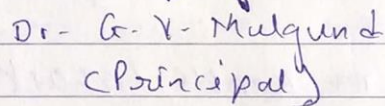 Dr- G. V. Mulgund
(Principal)